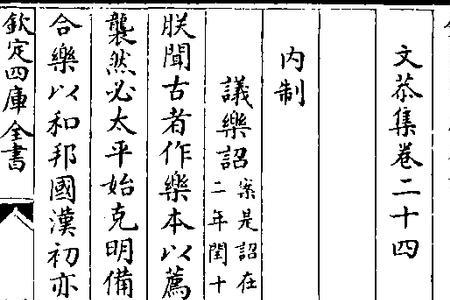 文恭集卷二十四
内制
議樂詔案是詔在
二年閏十
朕聞古者作樂本以薦
襲然必太平始克明備
合樂以和邦國漢初亦
欽定四庫全書